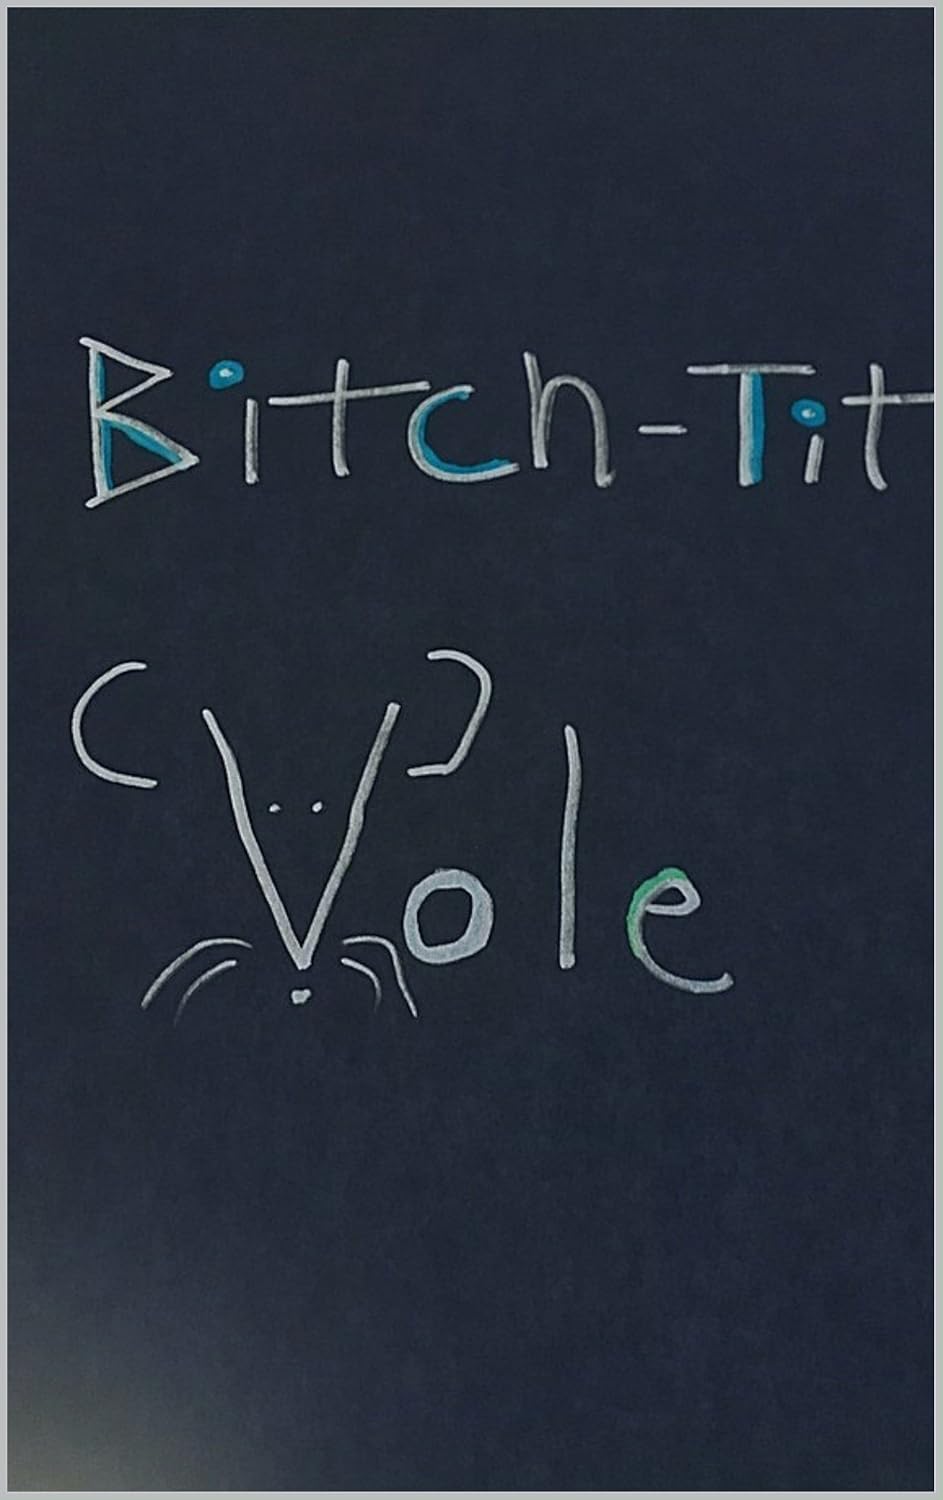 Bitch-Tit
Vole